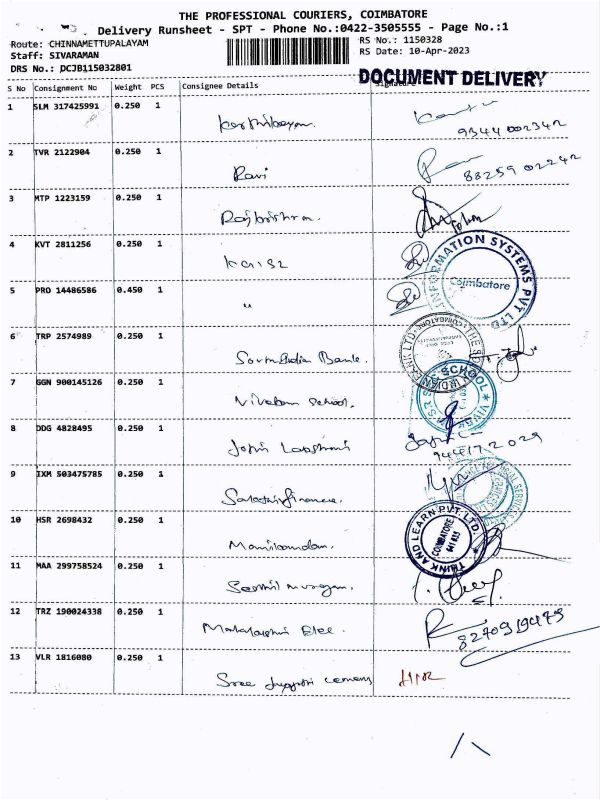 THE PROFESSIONAL COURIERS, COIMBATORE
Delivery Runsheet - SPT - Phone No.:0422-3505555 - Page No.:1
Route: CHINNAMETTUPALAYAM
RS No.: 1150328
Staff: SIVARAMAN
RS Date: 10-Apr-2023
DRS No.: DCJB115032801
DOCUMENT DELIVERY
S No Consignment No Weight PCS Consignee Details Signature
1 SLM 317425991 0.250 1
9344002342
2 TVR 2122904 0.250 1 Ravi
8825902242
3 MTP 1223159 0.250 1 Rajkrishna.
4 KVT 2811256 0.250 1
INFORMATION SYSTEMS PVT LTD
Coimbatore
5 PRO 14486586 0.450 1 "
6 TRP 2574989 0.250 1 South Indian Bank.
7 GGN 900145126 0.250 1 Vivekam School.
SCHOOL
8 DDG 4828495 0.250 1
9 IXM 503475785 0.250 1
10 HSR 2698432 0.250 1 Manikandan.
THINK AND LEARN PVT. LTD.
COIMBATORE
641 035
11 MAA 299758524 0.250 1 Senthil murugan.
12 TRZ 190024338 0.250 1
8270919473
13 VLR 1816080 0.250 1